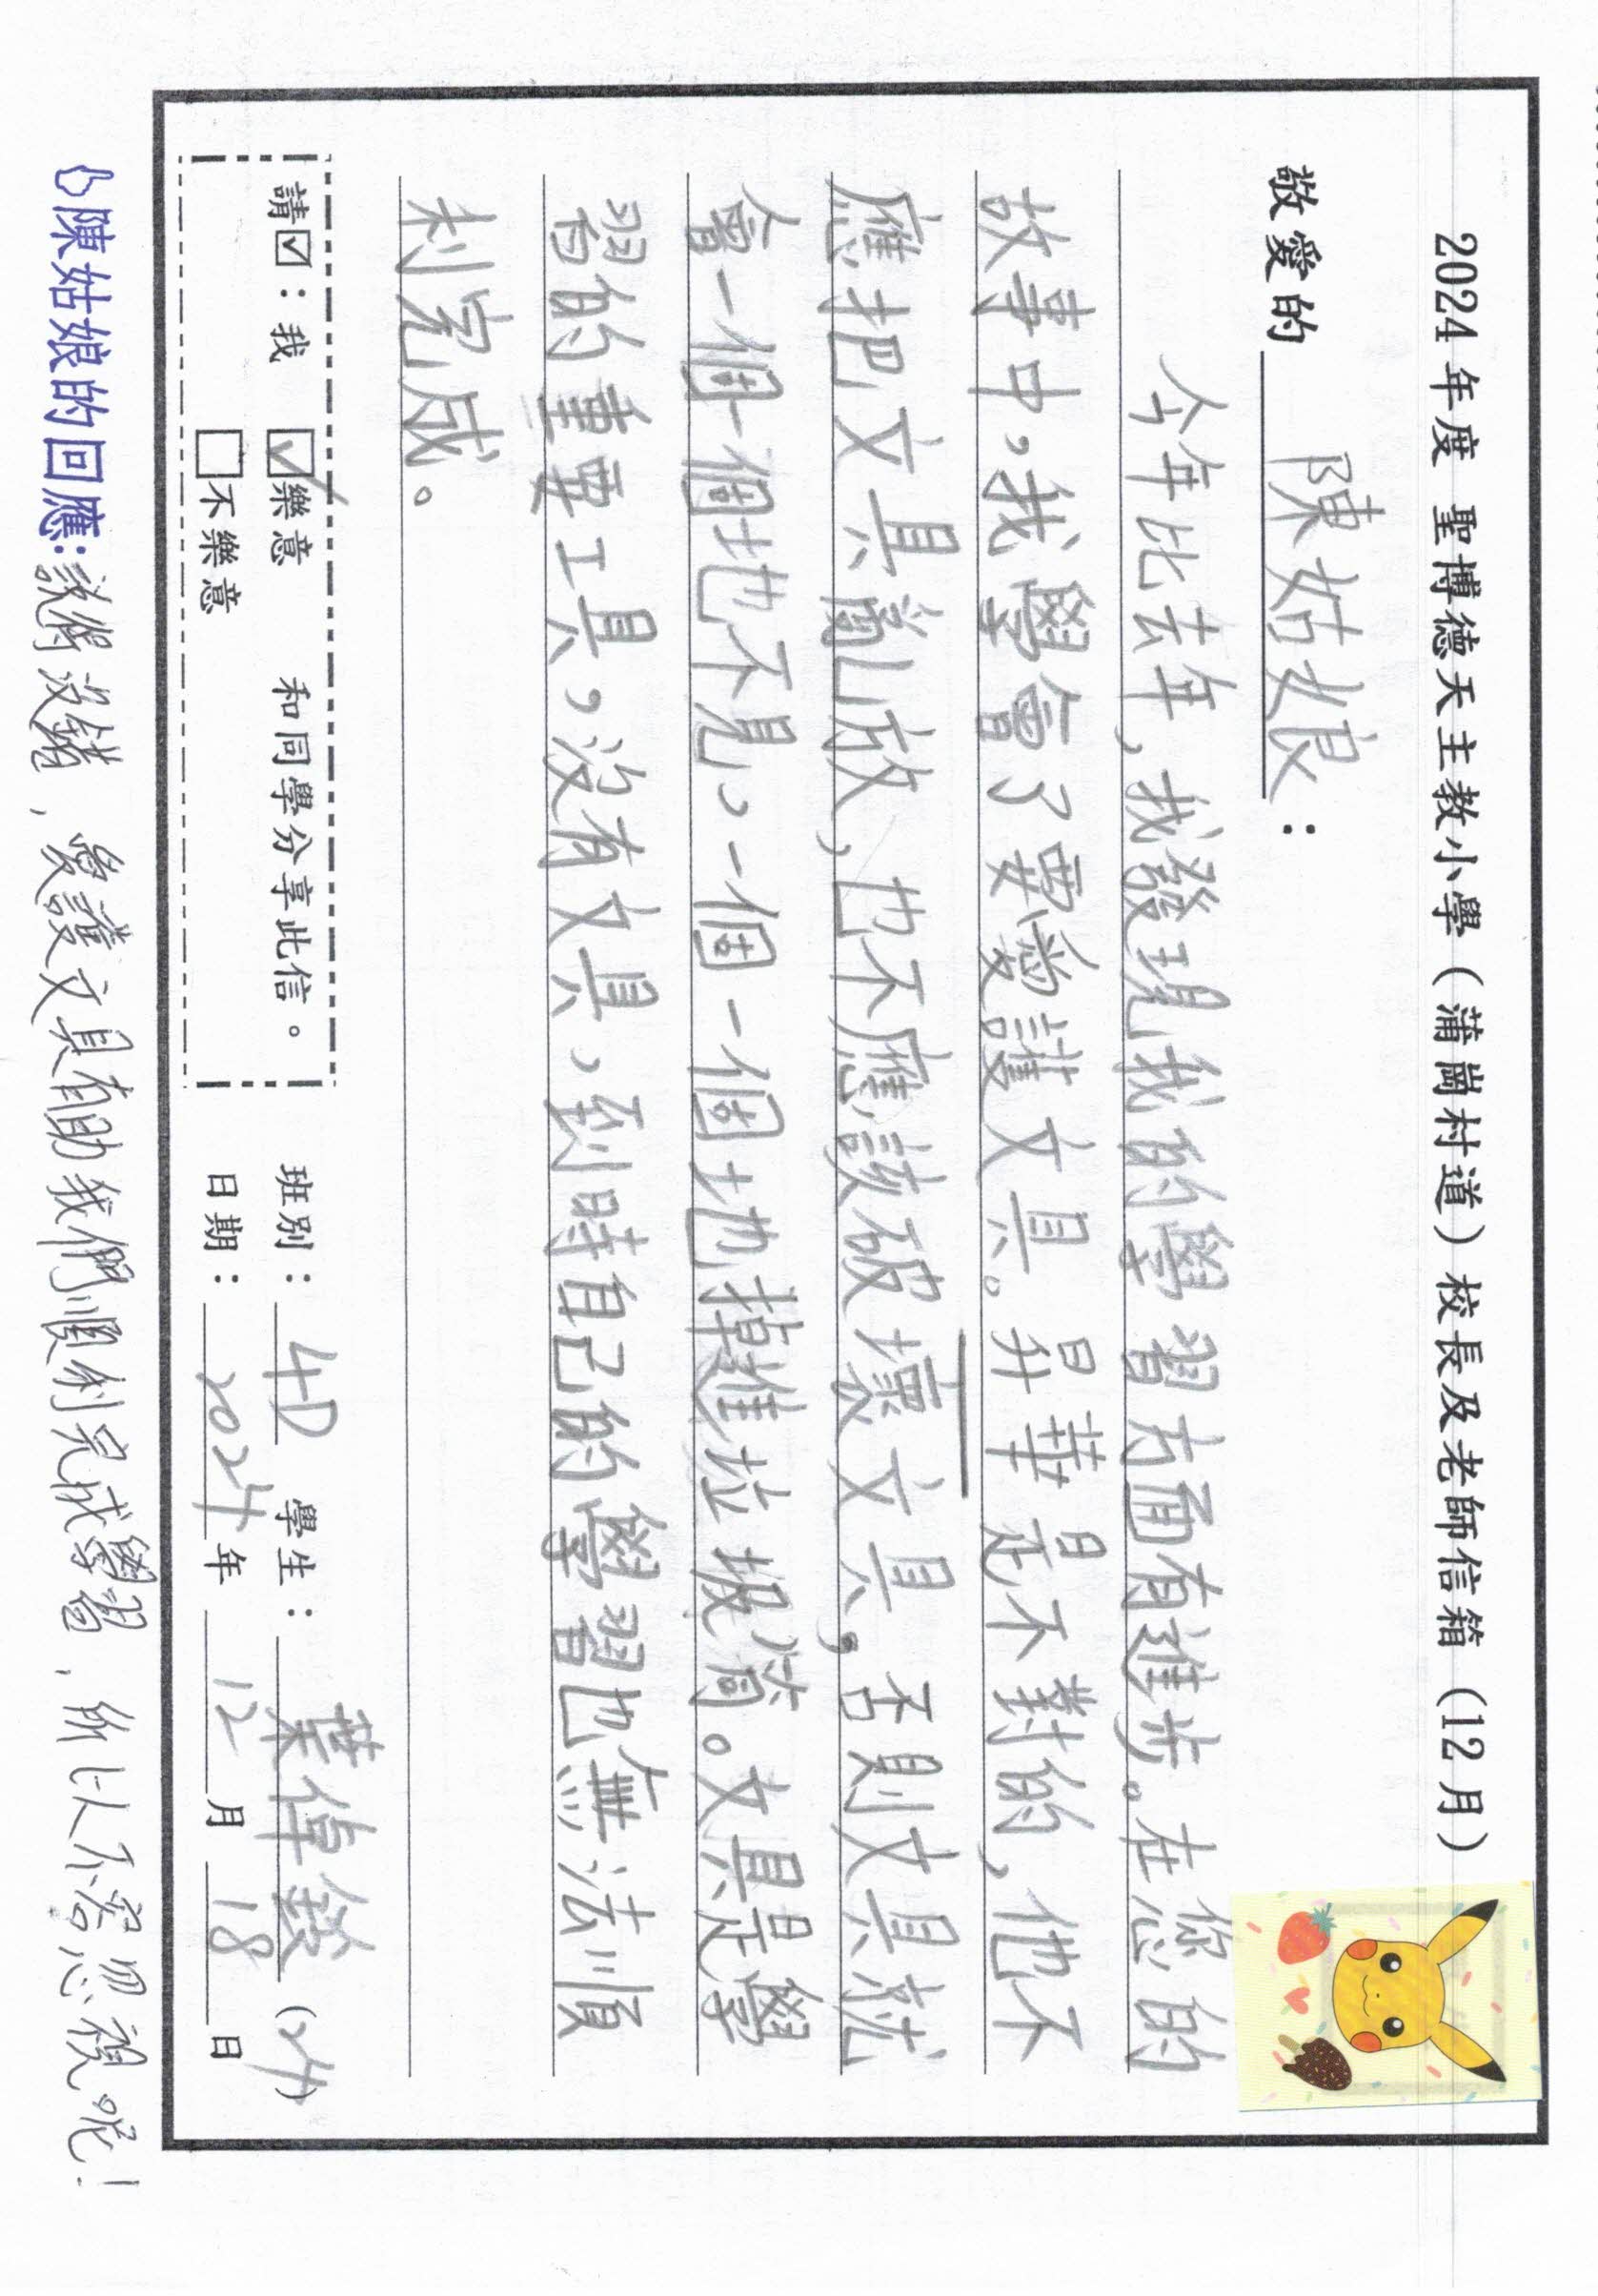 2024年度 聖博德天主教小學（蒲崗村道）校長及老師信箱（12月）
敬愛的 陳姑娘：
今年比去年，我發現我的學習方面有進步。在您的
故事中，我學會了要愛護文具。昇華是不對的，他不
應把文具亂放，也不應該破壞文具，否則文具就
會一個一個地不見，一個一個地掉進垃圾筒。文具是學
習的重要工具，沒有文具，到時自己的學習也無法順
利完成。
請☑：我 ☑樂意 和同學分享此信。
□不樂意
班別：4D 學生：葉倬鋑（24）
日期：2024年12月18日
陳姑娘的回應：說得沒錯，愛護文具有助我們順利完成學習，所以不容忽視呢！